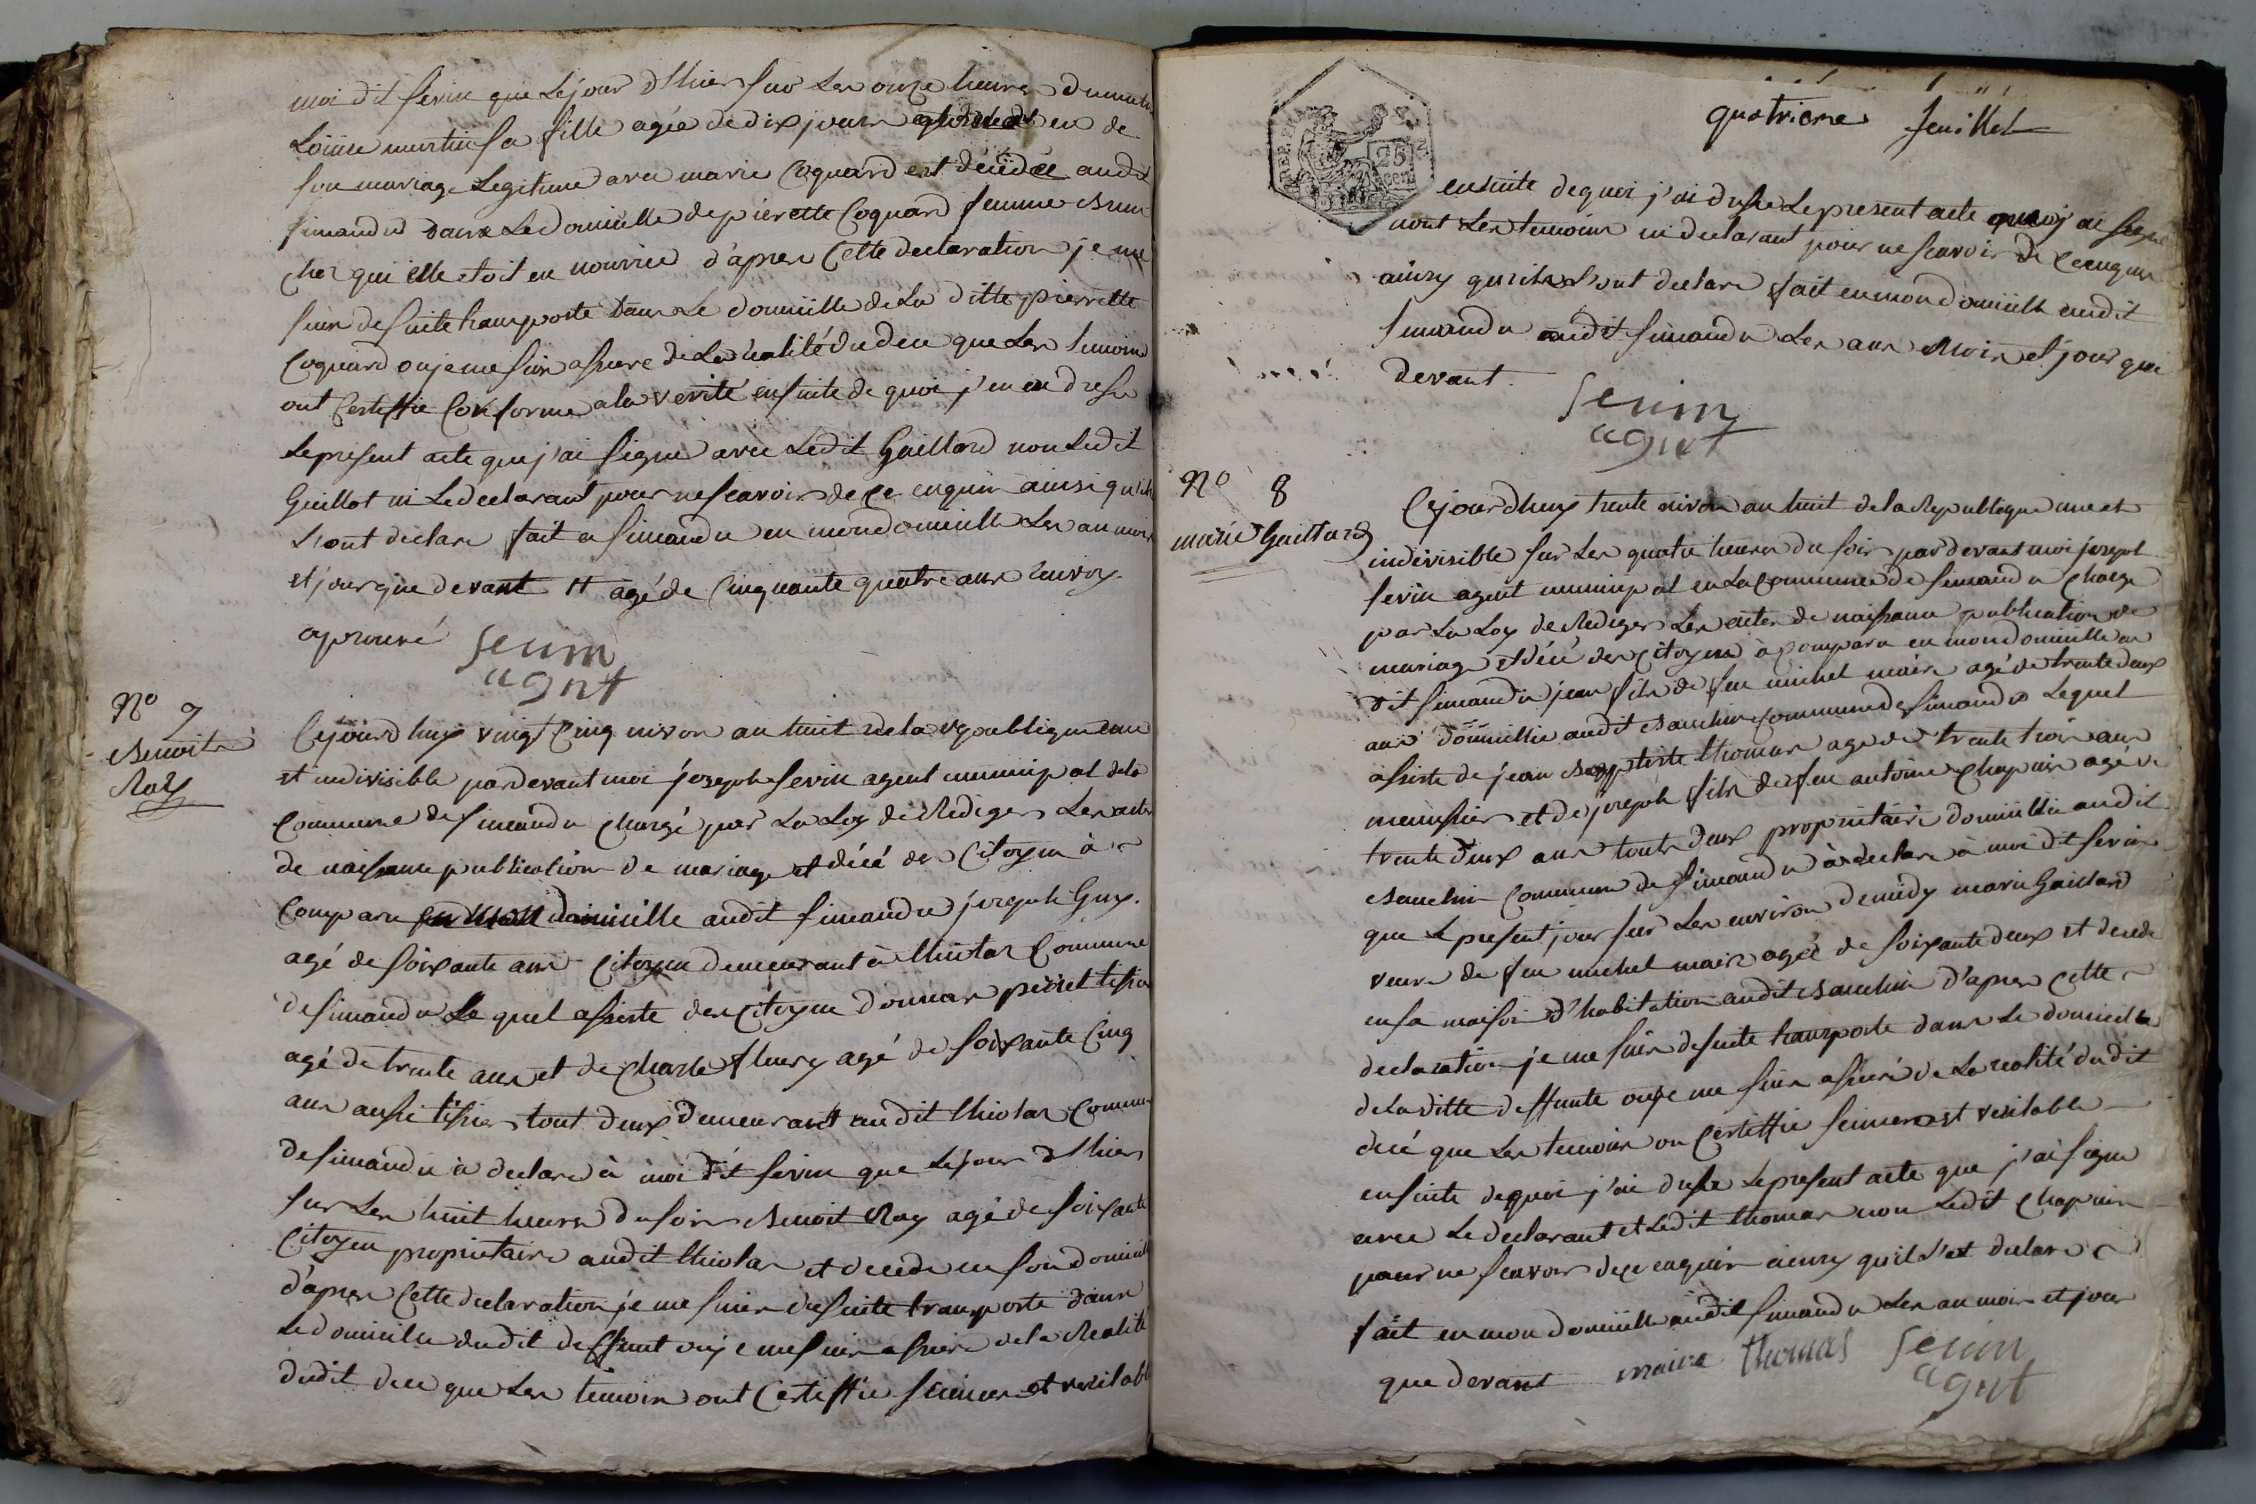 moi dit serin que Le jour d'hier sur Les onze heures du matin
Loüise martin sa fille agée de dix jours en de
son mariage Legitime avec marie Coquard est décédée audit
simandre dans Le domicille de pierette Coquard femme
chez qui elle etoit en nourrice d'apres Cette declaration je me
suis de suite transporte dans Le domicille de La ditte pierrette
Coquard ou je me suis assure de La realité du dece que Les temoins
ont Certiffie Conforme a la verité ensuite de quoi j'en ai dresse
Le present acte que j'ai signe avec Ledit Gaillard non Ledit
Guillot ni Le declarant pour ne scavoir de ce enquis ainsi qu'ils
L'ont declare fait a simandre en mon domicille Les an mois
et jour que devant # agé de Cinquante quatre ans renvoy
aprouvé Serin
agnt
No 7
Benoite
Roy
Cejourd huy vingt Cinq nivos an huit de la republique une
et indivisible pardevant moi joseph serin agent municipal de la
Commune de simandre chargé par La Loy de Rediger Les actes
de naissance publication de mariage et décé des Citoyen à
Comparu en mon domicille audit simandre joseph Guy
agé de soixante ans Citoyen demeurant à Commune
de simandre Le quel assiste des Citoyen tissier
agé de trente ans et de Charle fleury agé de soixante Cinq
ans aussi tissier tout deux demeurant audit Commune
de simandre à declaré à moi dit serin que Le jour d'hier
sur Les huit heures du soir Benoit Roy agé de soixante
Citoyen proprietaire audit et decede en son domicille
d'apres Cette declaration je me suis de suite transporte dans
Le domicille dudit deffunt ou je me suis assure de la Realité
dudit dece que Les temoin ont Certiffie sincere et veritable
quatrieme feuillet
25
cen
ensuite de quoi j'ai dresse Le present acte que j'ai signe
nont Les temoins ni declarant pour ne scavoir de ce enquis
ainsy qu'ils L'ont declare fait en mon domicille audit
simandre audit simandre Les ans Mois et jour que
devant.
Serin
agnt
No 8
marie Gaillard
Cejourdhuy trente nivos an huit de la Republique une et
indivisible sur Les quatre heures du soir pardevant moi joseph
serin agent municipal en La Commune de simandre Charge
par La Loy de Rediger Les actes de naissance publication de
mariage et décé des Citoyens à Comparu en mon domicille au
dit simandre jean fils de feu michel maire agé de trente deux
ans domicillie audit Commune de simandre Lequel
assiste de jean Baptiste thomas age de trente trois ans
menuisier et de joseph fils de feu antoine Chapuis agé de
trente deux ans touts deux propriétaire domicillie audit
Commune de simandre à declare à moi dit serin
que Le present jour sur Les environ de midy marie Gaillard
veuve de feu michel maire agée de soixante deux et decede
en sa maison d'habitation audit d'apres Cette
declaration je me suis de suite transporte dans Le domicille
de La ditte deffunte ou je me suis assuré de La realité dudit
decé que Les temoins on Certiffie sincere et veritable
ensuite de quoi j'ai dresse Le present acte que j'ai signe
avec Le declarant et Ledit thomas non Ledit Chapuis
pour ne scavoir de ce enquis ainsy qu'il L'et declare
fait en mon domicille audit simandre Les an mois et jour
que devant maire thomas Serin
agnt